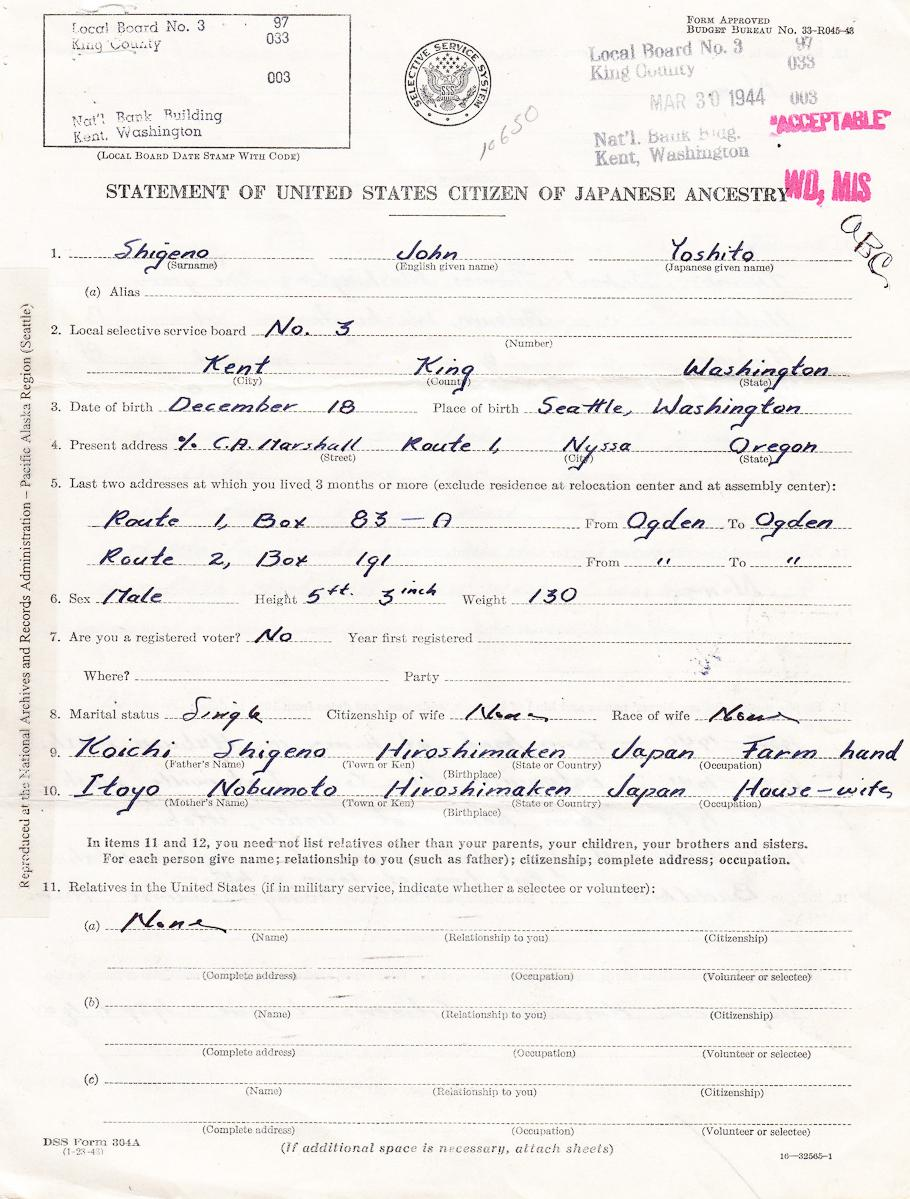 Local Board No. 3 97
King County 033
003
Nat'l. Bank Building
Kent, Washington
(LOCAL BOARD DATE STAMP WITH CODE)
SELECTIVE SERVICE SYSTEM
FORM APPROVED
BUDGET BUREAU NO. 33-R045-43
Local Board No. 3 97
King County 033
MAR 30 1944 003
Nat'l. Bank Bldg.
Kent, Washington
"ACCEPTABLE"
10650
STATEMENT OF UNITED STATES CITIZEN OF JAPANESE ANCESTRY
WD, MIS
1. Shigeno John Yoshito
(Surname) (English given name) (Japanese given name)
(a) Alias
2. Local selective service board No. 3
(Number)
Kent King Washington
(City) (County) (State)
3. Date of birth December 18 Place of birth Seattle, Washington
4. Present address % C.A. Marshall Route 1, Nyssa Oregon
(Street) (City) (State)
5. Last two addresses at which you lived 3 months or more (exclude residence at relocation center and at assembly center):
Route 1, Box 83-A From Ogden To Ogden
Route 2, Box 191 From " To "
6. Sex Male Height 5 ft. 3 inch Weight 130
7. Are you a registered voter? No Year first registered
Where? Party
8. Marital status Single Citizenship of wife None Race of wife None
9. Koichi Shigeno Hiroshimaken Japan Farm hand
(Father's Name) (Town or Ken) (State or Country) (Occupation)
(Birthplace)
10. Itoyo Nobumoto Hiroshimaken Japan House-wife
(Mother's Name) (Town or Ken) (State or Country) (Occupation)
(Birthplace)
In items 11 and 12, you need not list relatives other than your parents, your children, your brothers and sisters.
For each person give name; relationship to you (such as father); citizenship; complete address; occupation.
11. Relatives in the United States (if in military service, indicate whether a selectee or volunteer):
(a) None
(Name) (Relationship to you) (Citizenship)
(Complete address) (Occupation) (Volunteer or selectee)
(b)
(Name) (Relationship to you) (Citizenship)
(Complete address) (Occupation) (Volunteer or selectee)
(c)
(Name) (Relationship to you) (Citizenship)
(Complete address) (Occupation) (Volunteer or selectee)
DSS Form 304A
(1-23-43)
(If additional space is necessary, attach sheets)
16—32565-1
Reproduced at the National Archives and Records Administration – Pacific Alaska Region (Seattle)